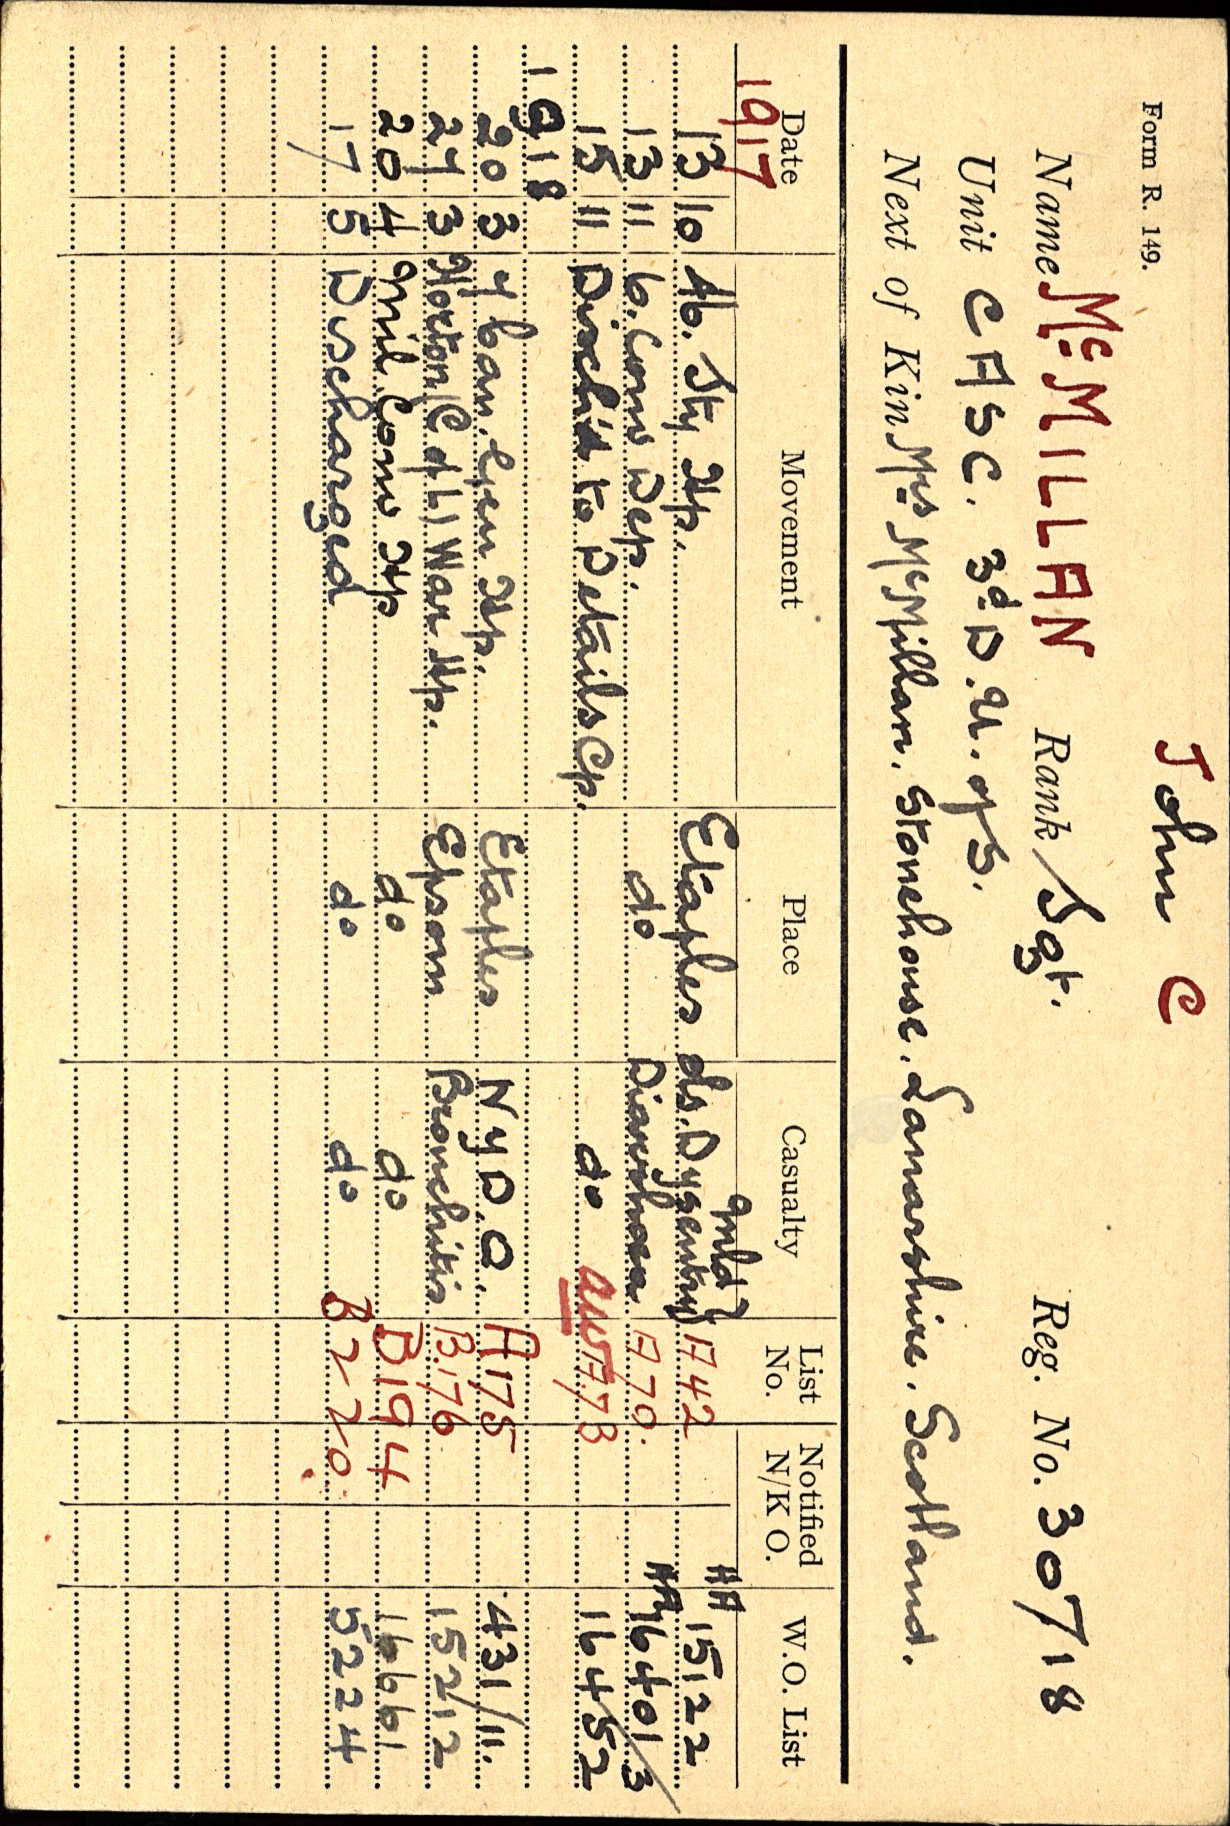 Form R. 149.
John C
Name McMILLAN Rank Sgt. Reg. No. 30718
Unit CASC. 3d. D.U. of S.
Next of Kin Mrs McMillan. Stonehouse. Lanarkshire. Scotland.
Date Movement Place Casualty List No. Notified N/K O. W.O. List
1917
13 10 46. Sty Hp. Etaples ds. Dysentry mld A42 HA 15122
13 11 6. Conv Dep. do Diarrhoea A70. HA 16401/3
15 11 Disch'd to Details Cp. do A73 16452
1918
20 3 7 Can. Gen Hp. Etaples N Y D.O. A175 431/11.
27 3 Horton (C of L) War Hp. Epsom Bronchitis B.176 15212
20 4 Mil Conv Hp do do B194 16661
17 5 Discharged do do B220. 5224